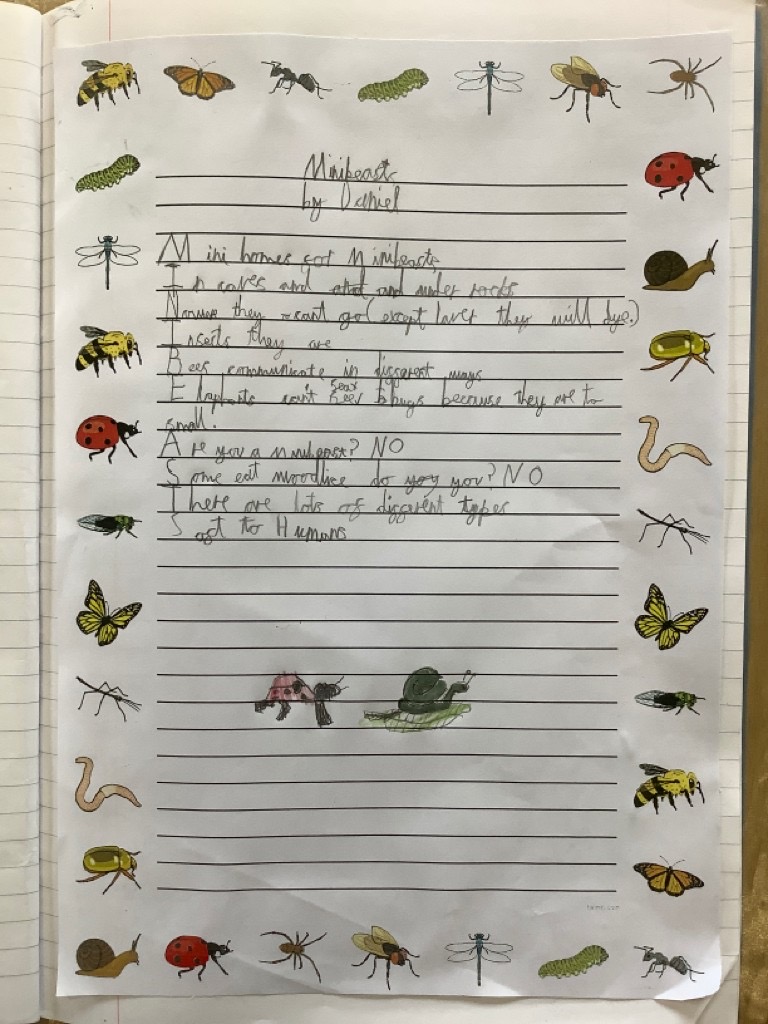 Minibeasts
by Daniel
Mini homes for Minibeasts
In caves and and under rocks
they can't go (except laver they will dye.)
Inserts they are
Bees communicate in different ways
Elephants can't bugs because they are to
small.
Are you a minibeast? NO
Some eat woodlice do you? NO
There are lots of different types
to Humans